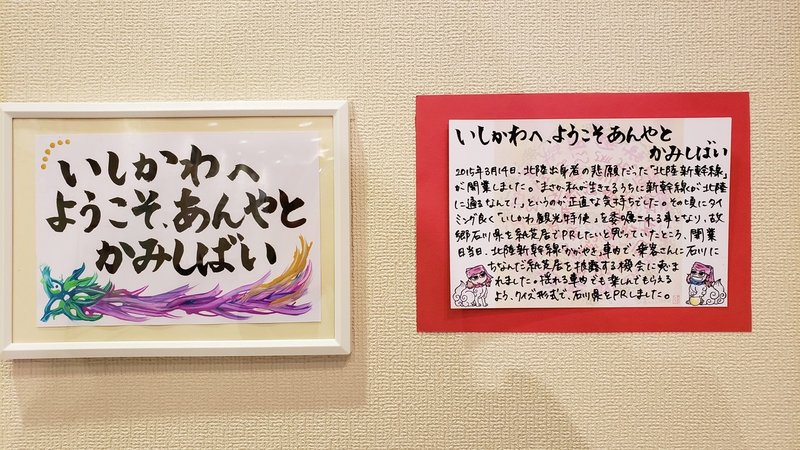 いしかわへ
ようこそ、あんやと
かみしばい
いしかわへ、ようこそあんやと
かみしばい
2015年3月14日、北陸出身者の悲願だった「北陸新幹線」
が開業しました。「まさか私が生きてるうちに新幹線が北陸
に通るなんて!」というのが正直な気持ちでした。その頃にタイ
ミング良く「いしかわ観光特使」を委嘱される事となり、故
郷石川県を紙芝居でPRしたいと思っていたところ、開業
日当日、北陸新幹線「かがやき」車内で、乗客さんに石川に
ちなんだ紙芝居を披露する機会に恵ま
れました。揺れる車内でも楽しんでもらえる
よう、クイズ形式で、石川県をPRしました。